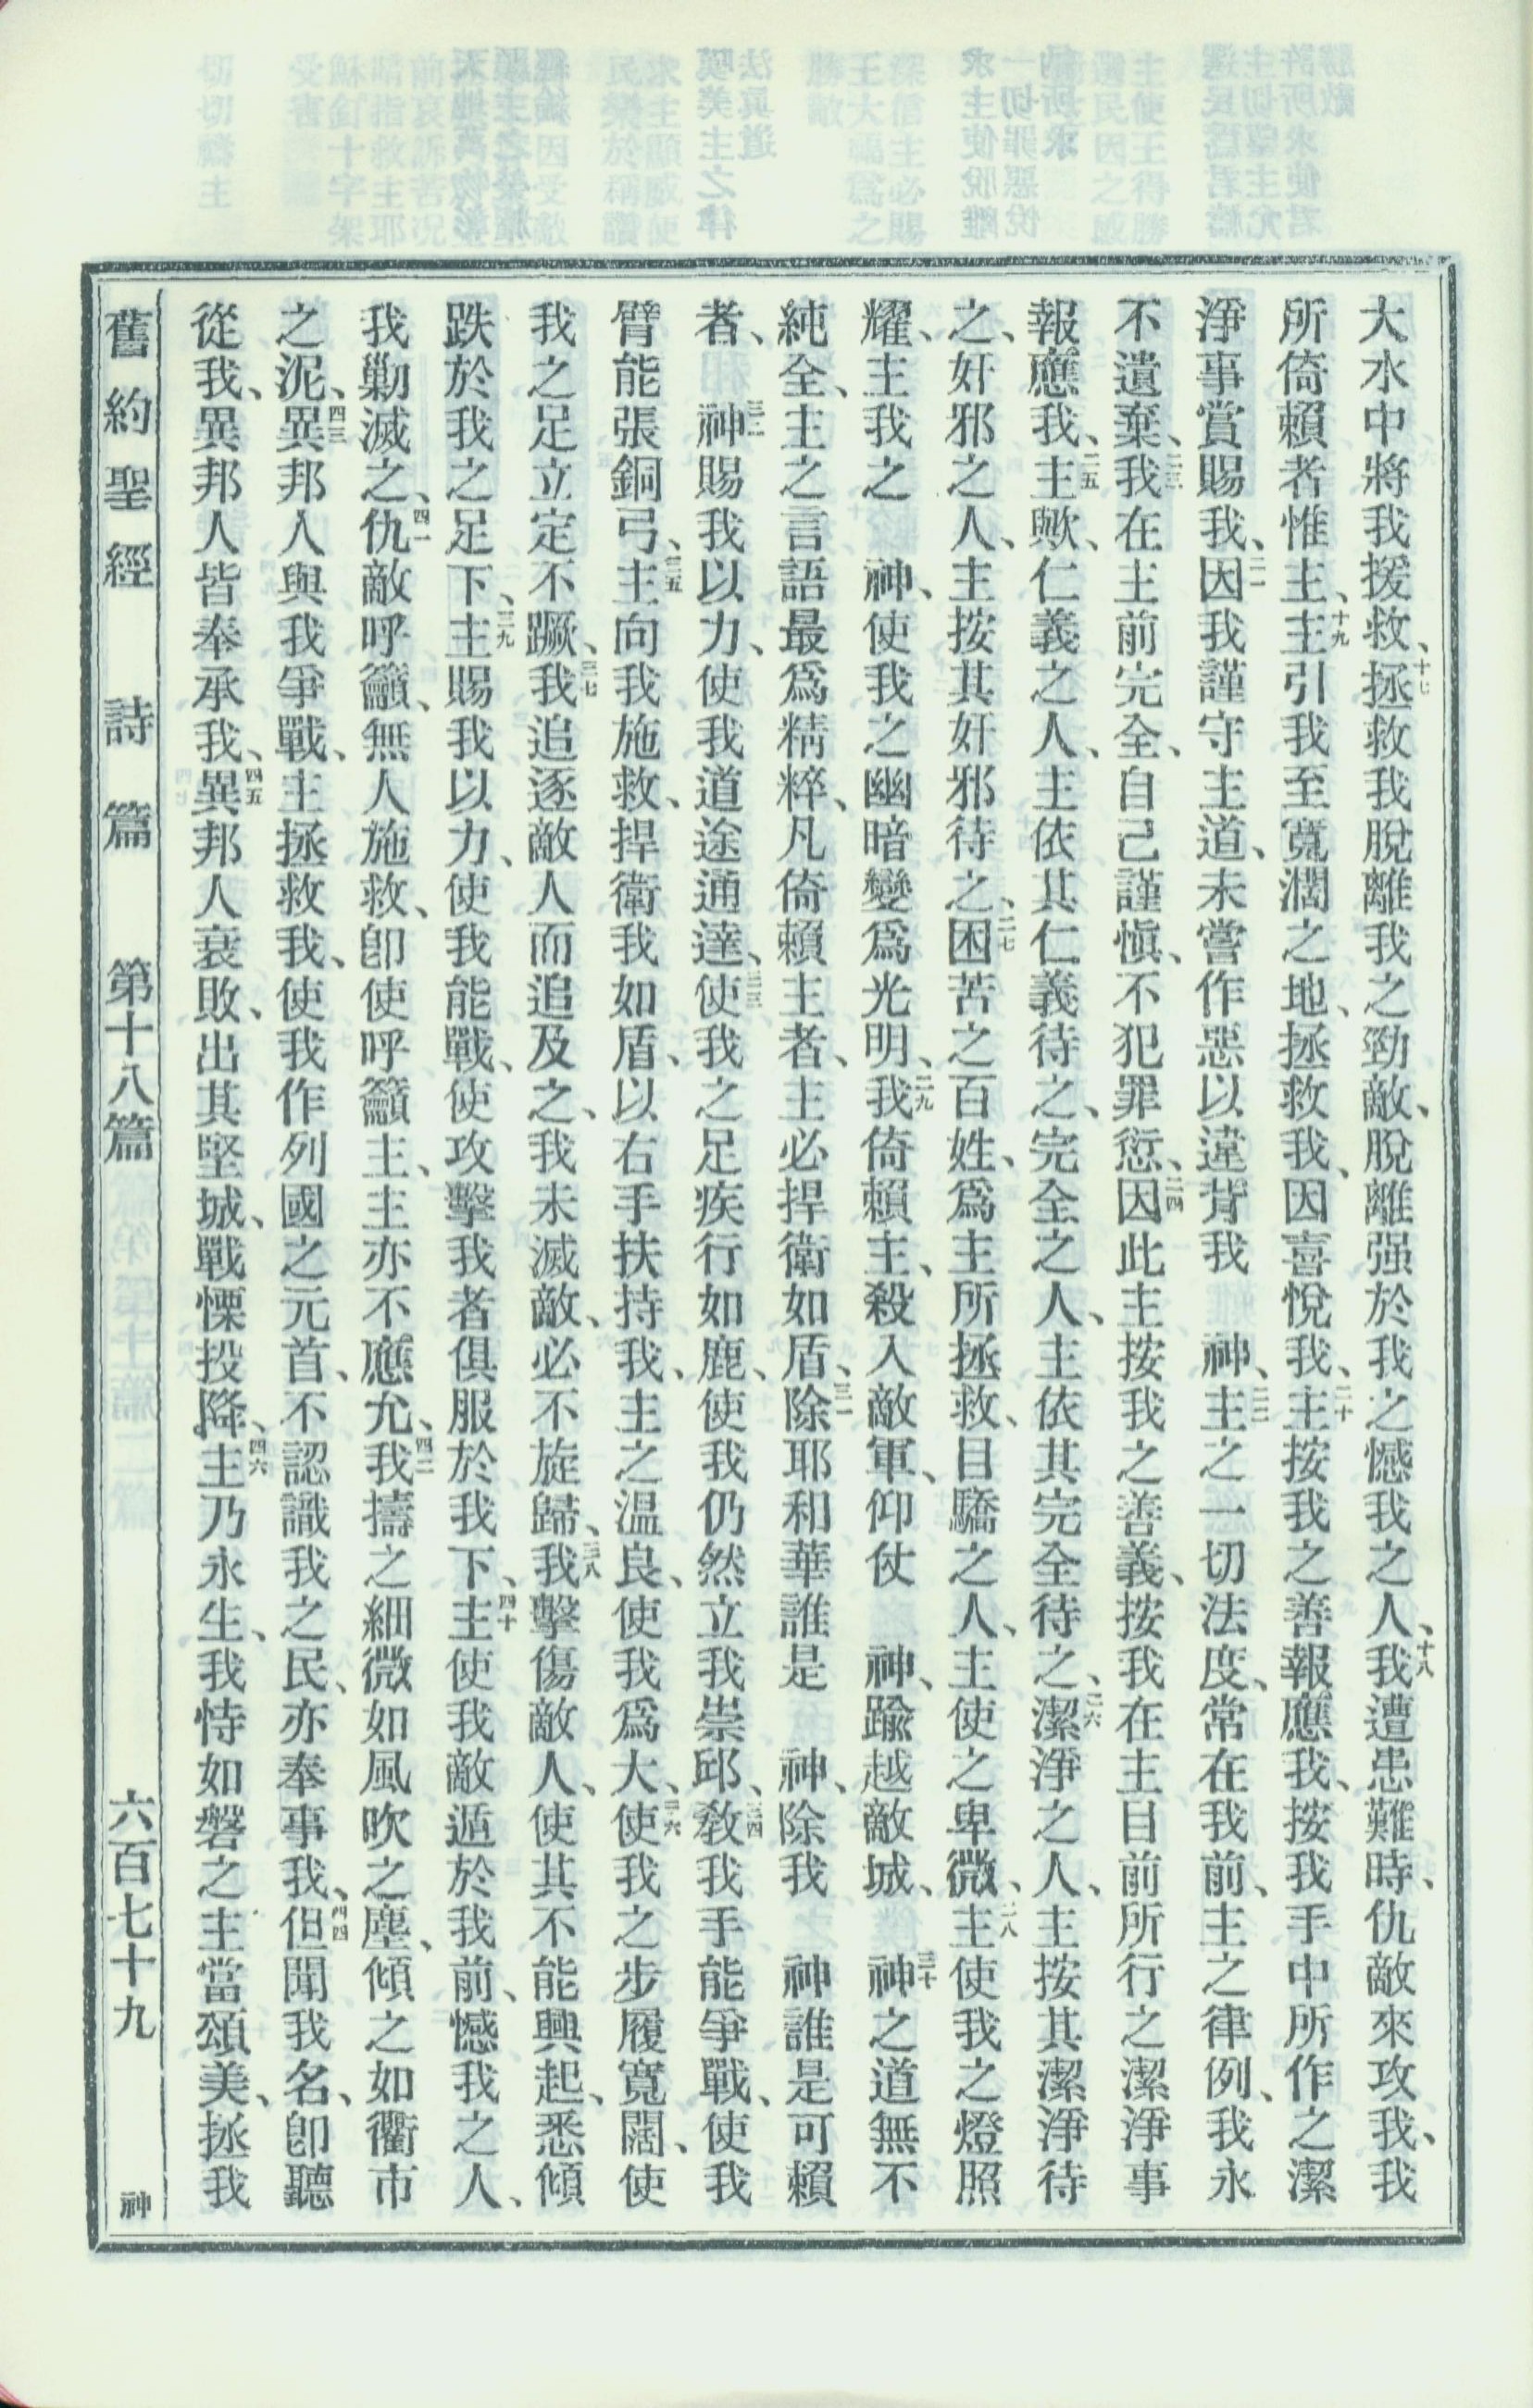 大水中將我援救、十七拯救我脫離我之勁敵、脫離强於我之憾我之人、十八我遭患難時、仇敵來攻我、我
所倚賴者惟主、十九主引我至寬濶之地、拯救我、因喜悅我、二十主按我之善報應我、按我手中所作之潔
淨事賞賜我、二一因我謹守主道、未嘗作惡以違背我　神、二二主之一切法度、常在我前、主之律例、我永
不遺棄、二三我在主前完全、自己謹愼、不犯罪愆、二四因此主按我之善義、按我在主目前所行之潔淨事
報應我、二五主歟、仁義之人、主依其仁義待之、完全之人、主依其完全待之、二六潔淨之人、主按其潔淨待
之、奸邪之人、主按其奸邪待之、二七困苦之百姓、爲主所拯救、目驕之人、主使之卑微、二八主使我之燈照
耀、主我之　神、使我之幽暗變爲光明、二九我倚賴主、殺入敵軍、仰仗　神、踰越敵城、三十　神之道無不
純全、主之言語最爲精粹、凡倚賴主者、主必捍衛如盾、三一除耶和華誰是　神、除我　神誰是可賴
者、三二　神賜我以力、使我道途通達、三三使我之足疾行如鹿、使我仍然立我崇邱、三四敎我手能爭戰、使我
臂能張銅弓、三五主向我施救、捍衛我如盾、以右手扶持我、主之温良、使我爲大、三六使我之步履寬闊、使
我之足立定不蹶、三七我追逐敵人而追及之、我未滅敵、必不旋歸、三八我擊傷敵人、使其不能興起、悉傾
跌於我之足下、三九主賜我以力、使我能戰、使攻擊我者俱服於我下、四十主使我敵遁於我前、憾我之人、
我勦滅之、四一仇敵呼籲、無人施救、卽使呼籲主、主亦不應允、四二我擣之細微如風吹之塵、傾之如衢市
之泥、四三異邦人與我爭戰、主拯救我、使我作列國之元首、不認識我之民、亦奉事我、四四但聞我名、卽聽
從我、異邦人皆奉承我、四五異邦人衰敗、出其堅城、戰慄投降、四六主乃永生、我恃如磐之主當頌美、拯我
舊約聖經　詩篇　第十八篇　六百七十九　神